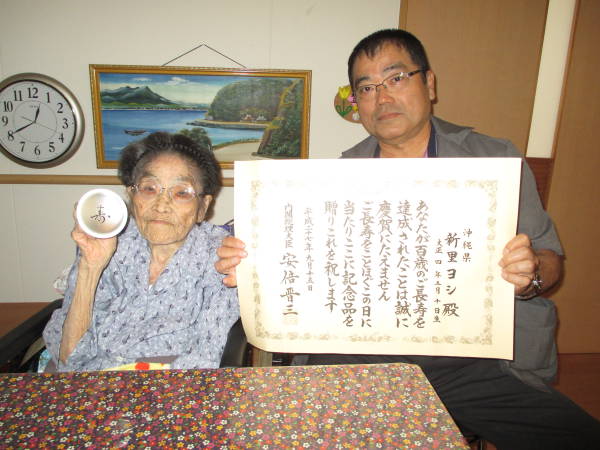 沖縄県
新里ヨシ殿
大正四年三月十日生
あなたが百歳のご長寿を
達成されたことは誠に
慶賀にたえません
ご長寿をことほぐこの日に
当たりここに記念品を
贈りこれを祝します
平成二十七年九月十五日
内閣総理大臣 安倍晋三
寿
12
1
2
3
4
5
6
7
8
9
10
11